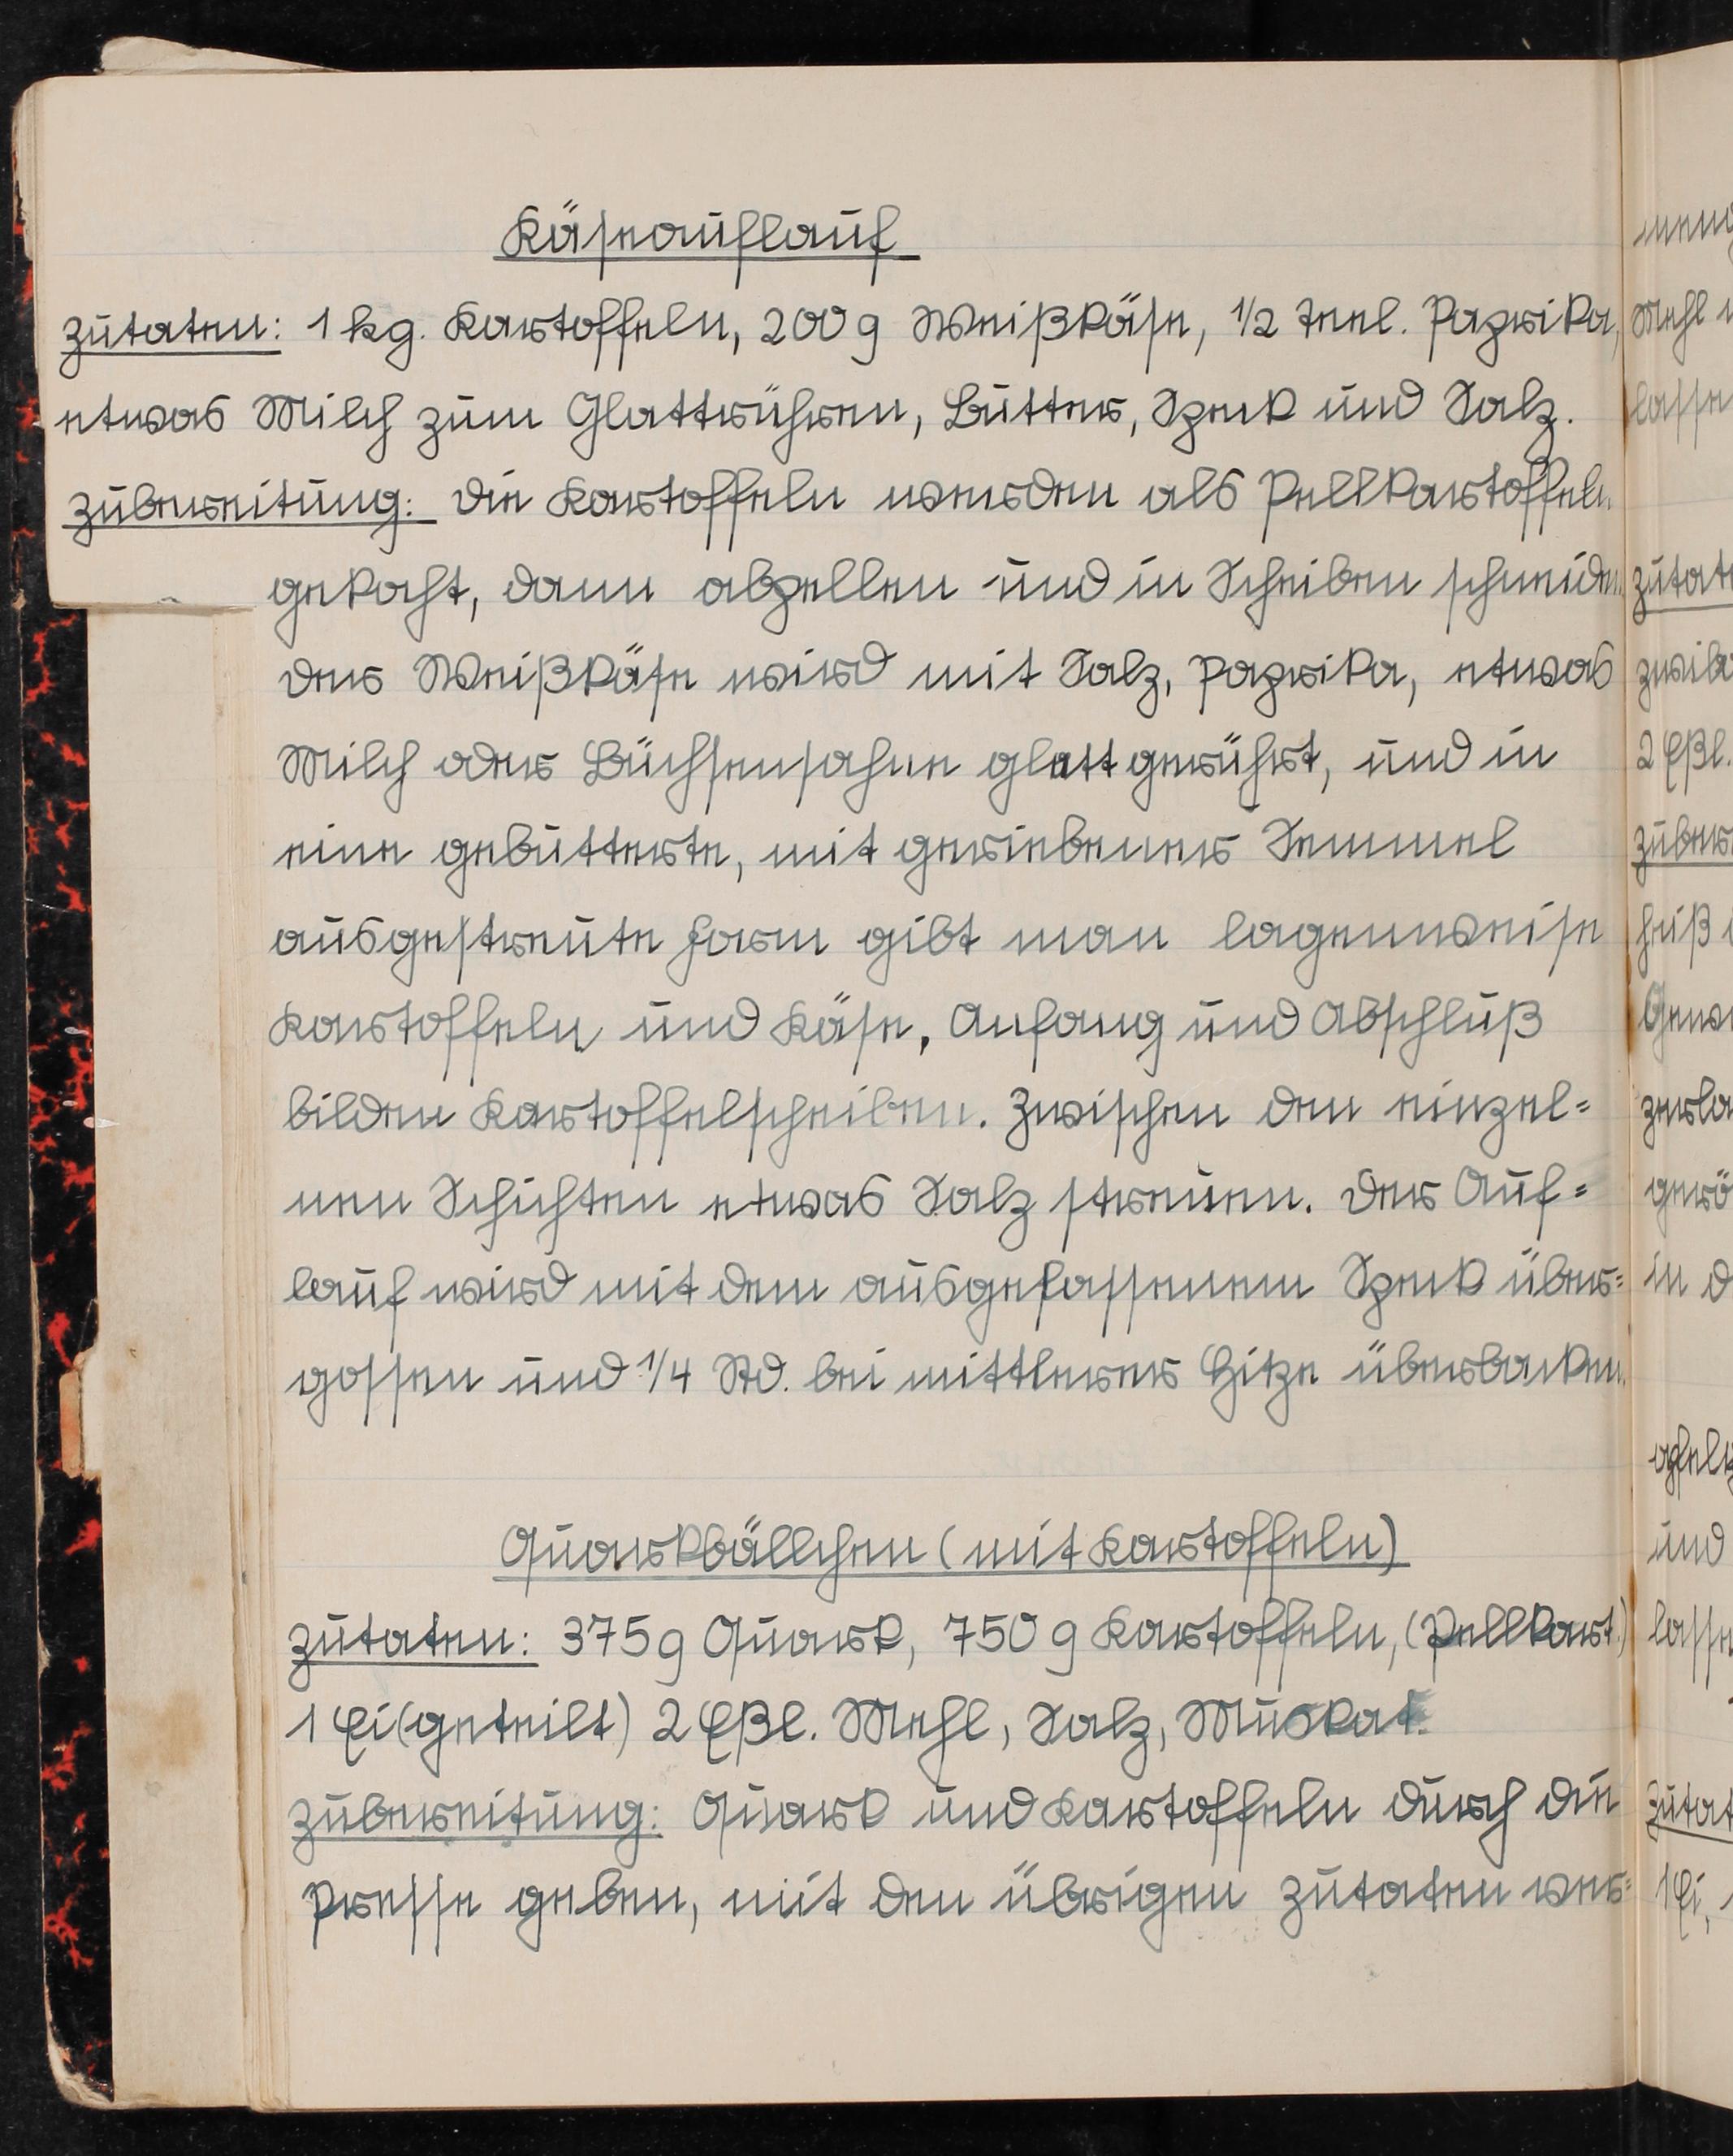 Käseauflauf
Zutaten: 1 kg. Kartoffeln, 200 g Weißkäse, 1/2 Teel. Paprika,
etwas Milch zum Glattrühren, Butter, Speck und Salz.
Zubereitung: Die Kartoffeln werden als Pellkartoffeln
gekocht, dann abpellen und in Scheiben schneiden.
Der Weißkäse wird mit Salz, Paprika, etwas
Milch oder Büchsensahne glatt gerührt, und in
eine gebutterte, mit geriebener Semmel
ausgestreute Form gibt man lagenweise
Kartoffeln und Käse, Anfang und Abschluß
bilden Kartoffelscheiben. Zwischen den einzel=
nen Schichten etwas Salz streuen. Der Auf=
lauf wird mit dem ausgelassenem Speck über=
gossen und 1/4 Std. bei mittlerer Hitze überbacken.
Quarkbällchen (mit Kartoffeln)
Zutaten: 375 g Quark, 750 g Kartoffeln, (Pellkart.)
1 Ei (geteilt) 2 Eßl. Mehl, Salz, Muskat.
Zubereitung: Quark und Kartoffeln durch die
Presse geben, mit den übrigen Zutaten ver=
Mehl
lasse
Zutate
2 Eßl.
Zuber
heiß
zerla
gerö
in d
und
lasse
Zutat
1 Ei,